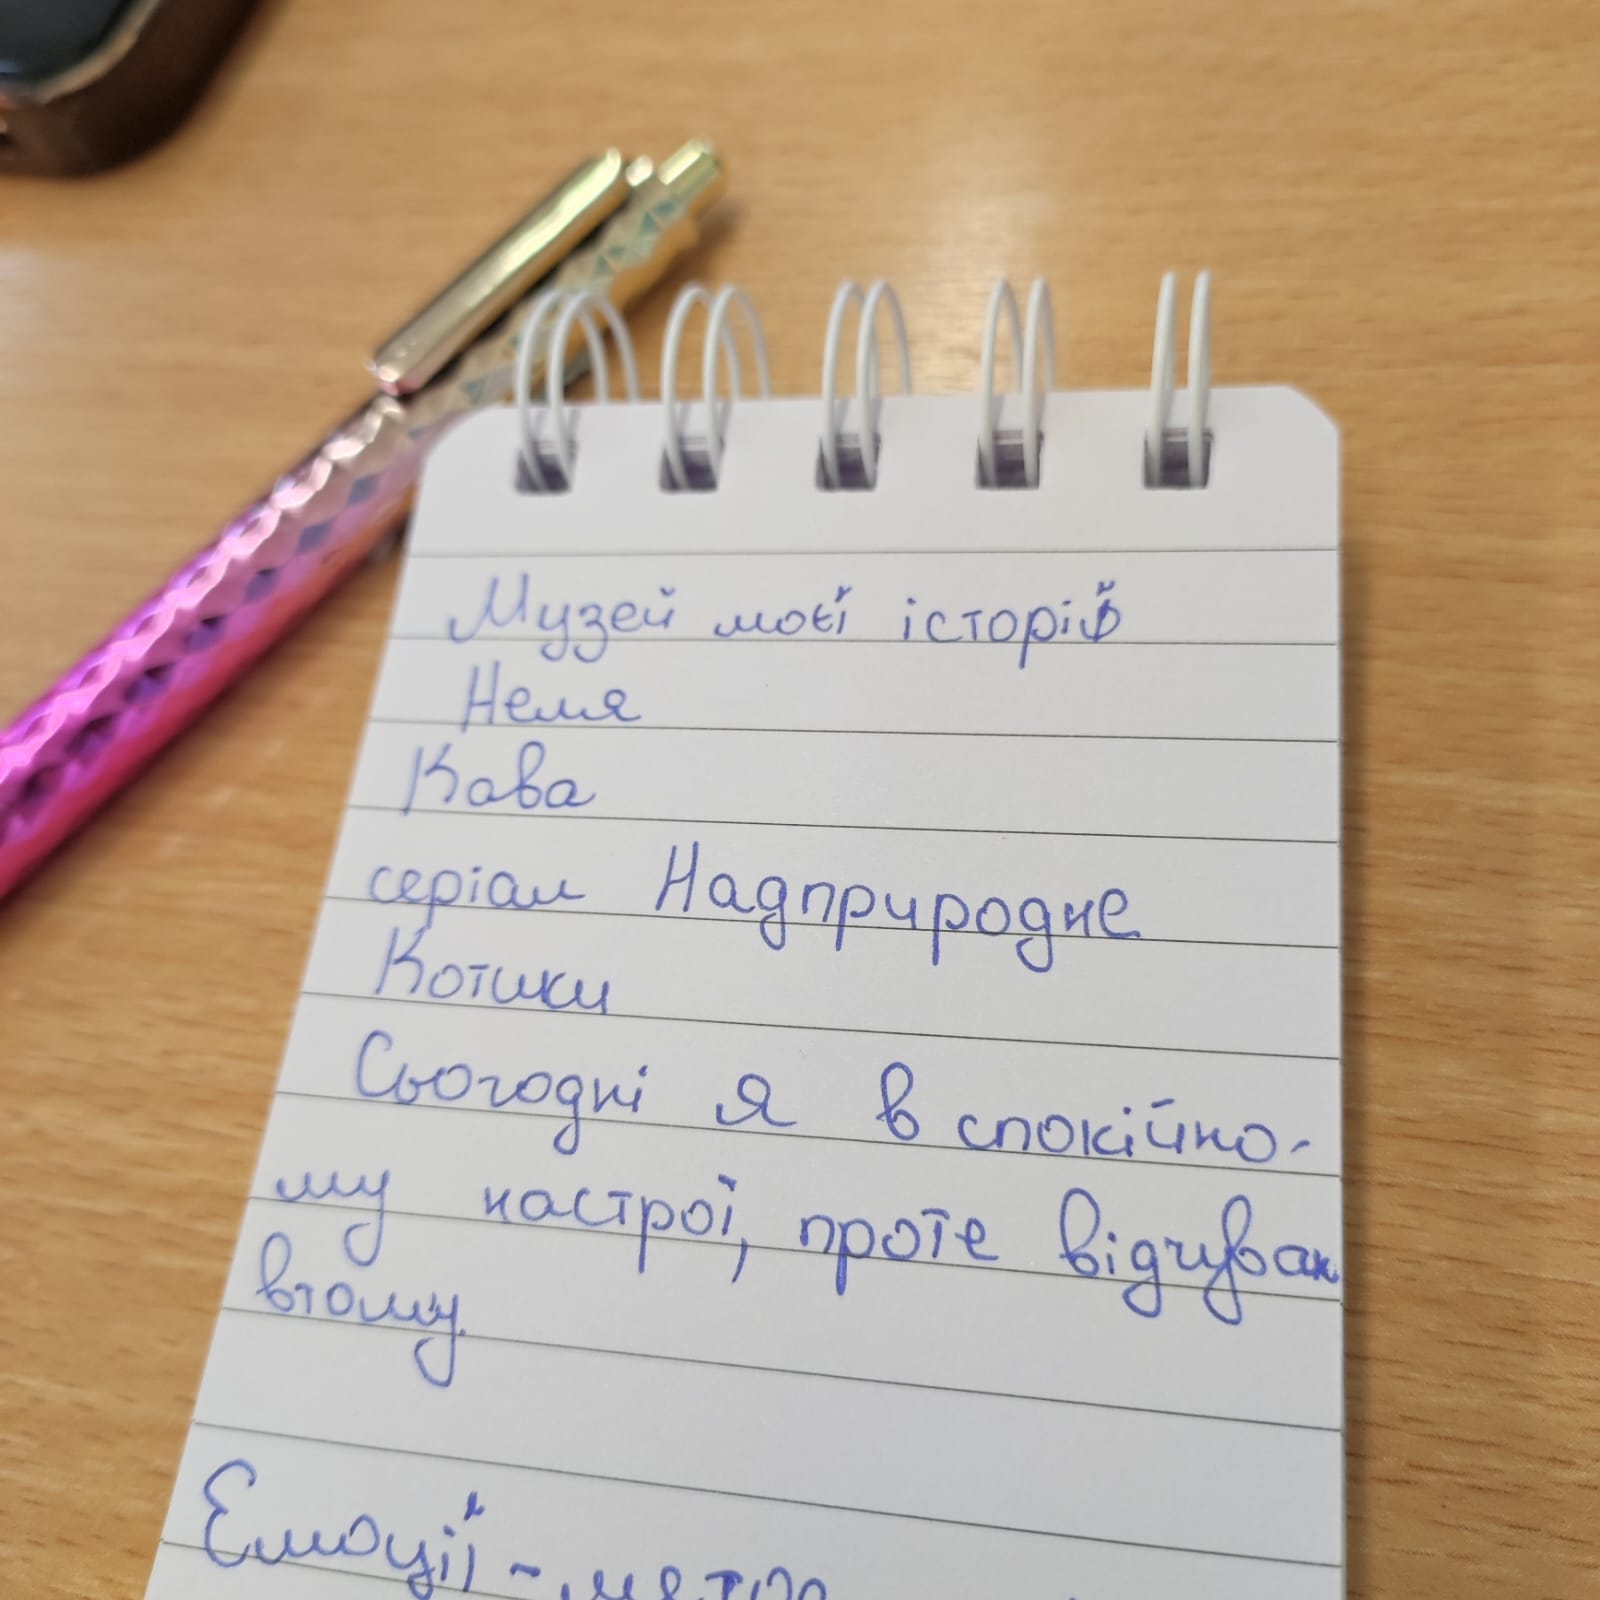 Музей моєї історії
Неля
Кава
серіал Надприродне
Котики
Сьогодні я в спокійно-
му настрої, проте відчуваю
втому.
Емоції -